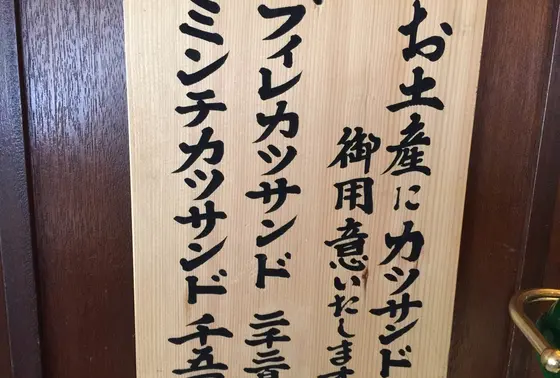 お土産にカツサンド
御用意いたします
フィレカツサンド 二千三百
ミンチカツサンド 千五